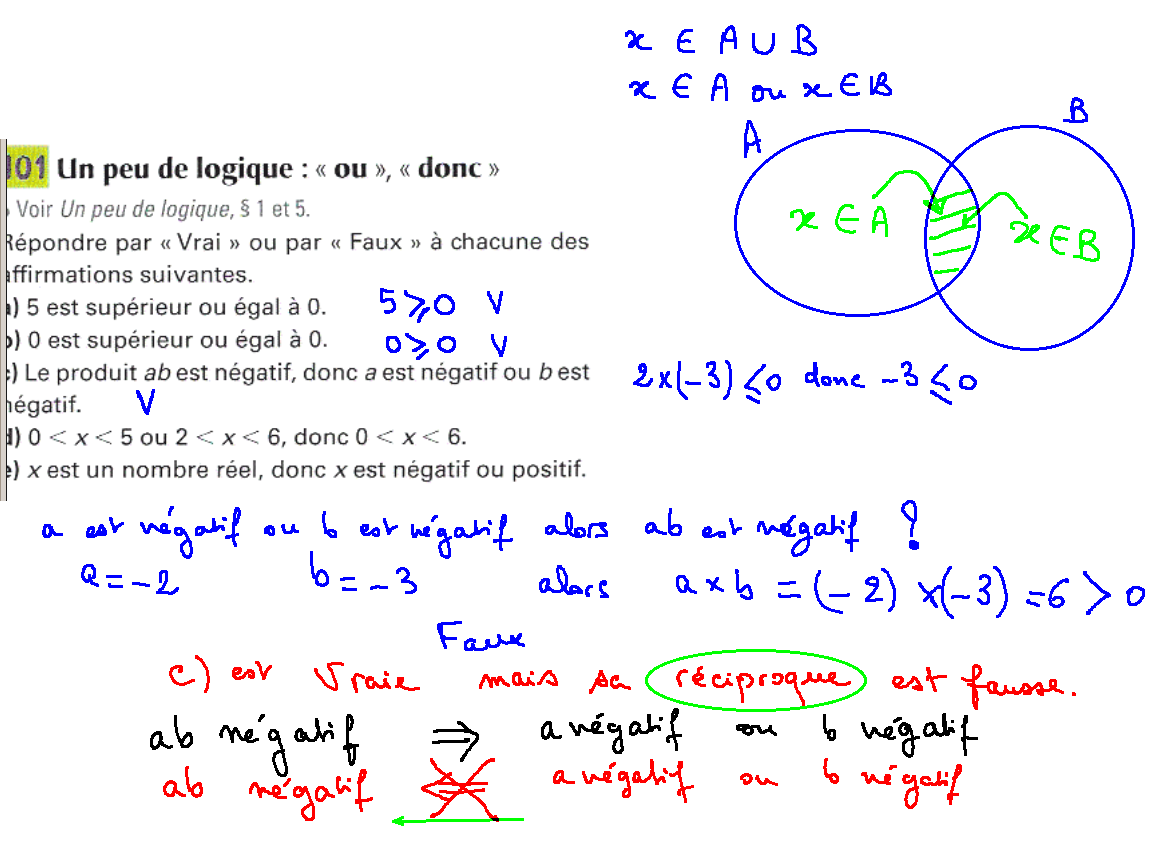 x ∈ A ∪ B
x ∈ A ou x ∈ B
A
B
x ∈ A
x ∈ B
101 Un peu de logique : « ou », « donc »
Voir Un peu de logique, § 1 et 5.
Répondre par « Vrai » ou par « Faux » à chacune des
affirmations suivantes.
a) 5 est supérieur ou égal à 0. 5 ⩾ 0 V
b) 0 est supérieur ou égal à 0. 0 ⩾ 0 V
c) Le produit ab est négatif, donc a est négatif ou b est
négatif. V
2 × (-3) ⩽ 0 donc -3 ⩽ 0
d) 0 < x < 5 ou 2 < x < 6, donc 0 < x < 6.
e) x est un nombre réel, donc x est négatif ou positif.
a est négatif ou b est négatif alors ab est négatif ?
a = -2 b = -3 alors a × b = (-2) × (-3) = 6 > 0
Faux
c) est Vraie mais sa réciproque est fausse.
ab négatif ⇒ a négatif ou b négatif
ab négatif ⇐ a négatif ou b négatif